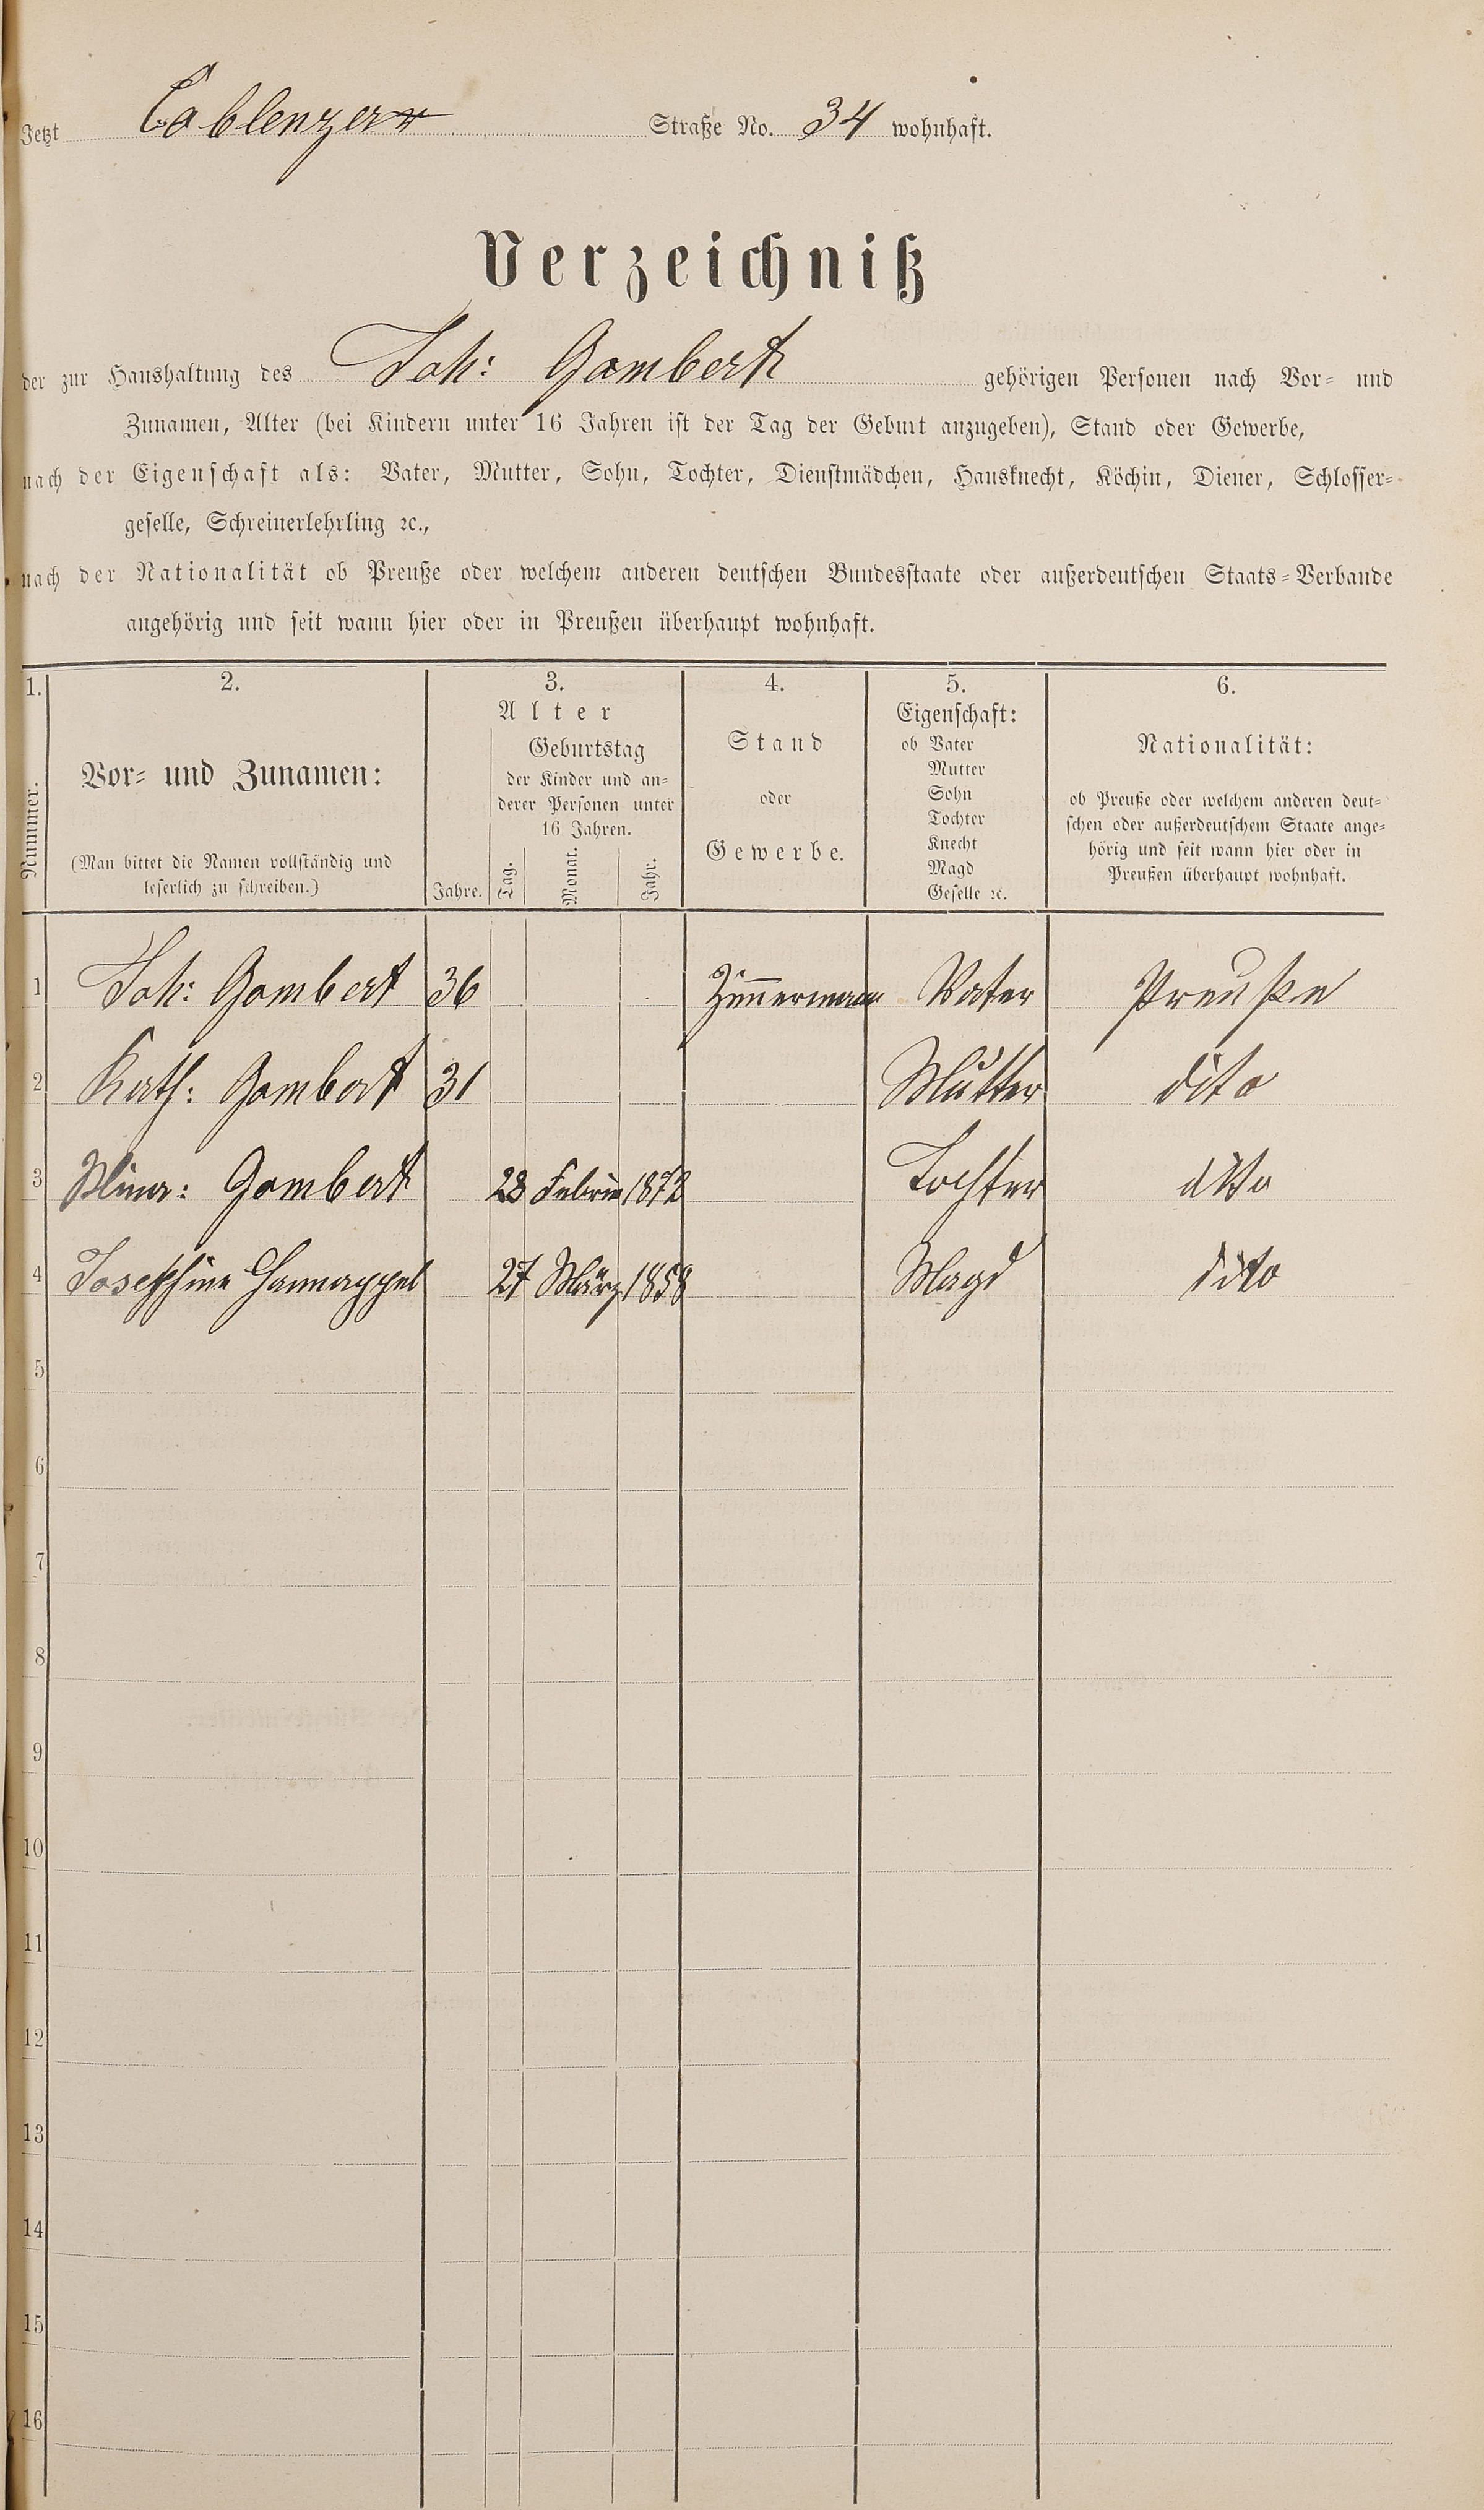 Jetzt Coblenzer Straße No. 34 wohnhaft.
Verzeichniß
der zur Haushaltung des Joh: Gombert gehörigen Personen nach Vor- und
Zunamen, Alter (bei Kindern unter 16 Jahren ist der Tag der Geburt anzugeben), Stand oder Gewerbe,
nach der Eigenschaft als: Vater, Mutter, Sohn, Tochter, Dienstmädchen, Hausknecht, Köchin, Diener, Schlosser-
geselle, Schreinerlehrling ꝛc.,
nach der Nationalität ob Preuße oder welchem anderen deutschen Bundesstaate oder außerdeutschen Staats-Verbande
angehörig und seit wann hier oder in Preußen überhaupt wohnhaft.
1. 2. 3. 4. 5. 6.
Nummer.
Vor- und Zunamen:
(Man bittet die Namen vollständig und
leserlich zu schreiben.)
Alter
Geburtstag
der Kinder und an-
derer Personen unter
16 Jahren.
Jahre. Tag. Monat. Jahr.
Stand
oder
Gewerbe.
Eigenschaft:
ob Vater
Mutter
Sohn
Tochter
Knecht
Magd
Geselle ꝛc.
Nationalität:
ob Preuße oder welchem anderen deut-
schen oder außerdeutschem Staate ange-
hörig und seit wann hier oder in
Preußen überhaupt wohnhaft.
1 Joh: Gombert 36 Zim̅ermann Vater Preuße
2 Kath: Gombert 31 Mutter dito
3 Mina: Gombert 28 1872 Tochter dito
4 Josephine 27 März 1858 Magd dito
5
6
7
8
9
10
11
12
13
14
15
16